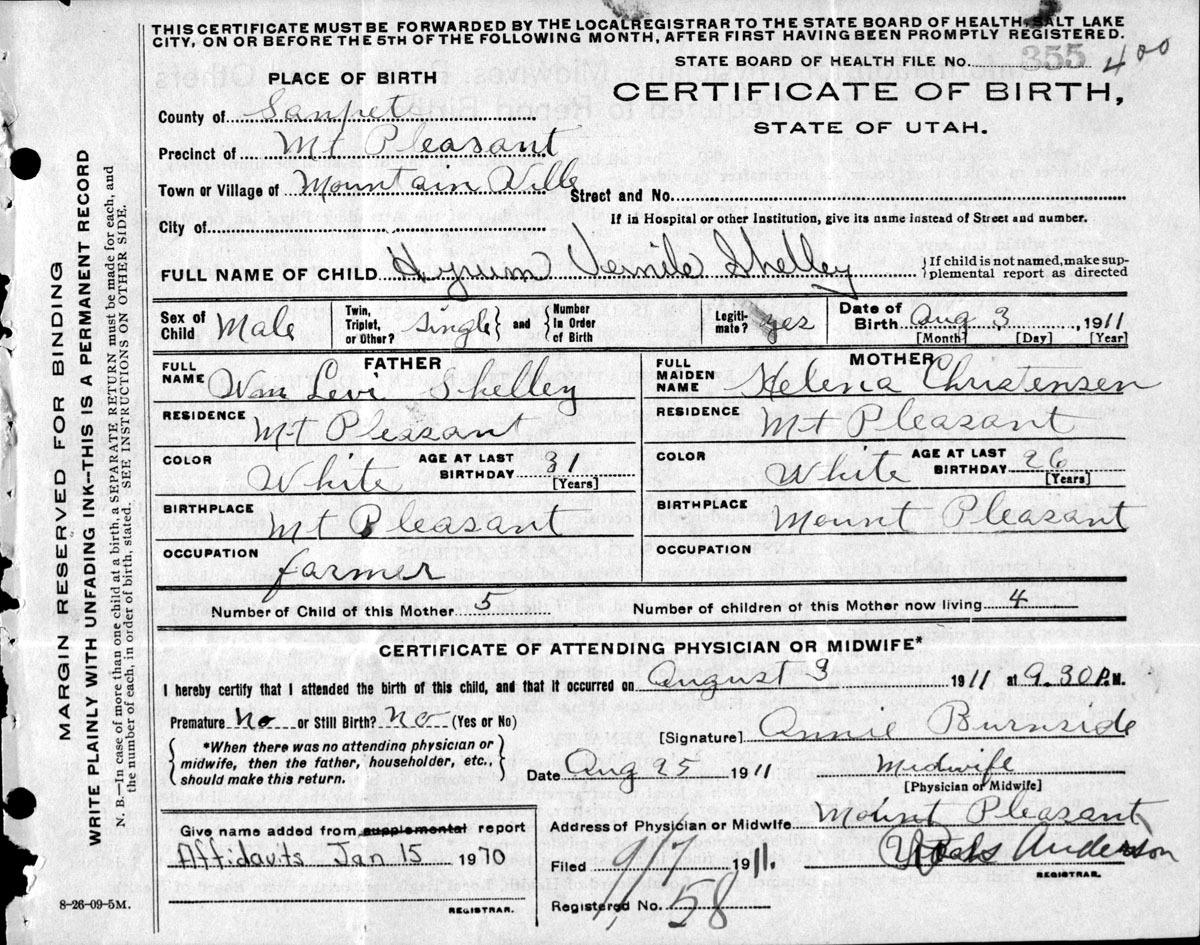 THIS CERTIFICATE MUST BE FORWARDED BY THE LOCAL REGISTRAR TO THE STATE BOARD OF HEALTH, SALT LAKE
CITY, ON OR BEFORE THE 5TH OF THE FOLLOWING MONTH, AFTER FIRST HAVING BEEN PROMPTLY REGISTERED.
STATE BOARD OF HEALTH FILE No. 355 400
PLACE OF BIRTH
CERTIFICATE OF BIRTH,
STATE OF UTAH.
County of Sanpete
Precinct of Mt Pleasant
Town or Village of Mountain Ville Street and No.
City of If in Hospital or other Institution, give its name instead of Street and number.
FULL NAME OF CHILD Hyrum Vernile Shelley {If child is not named, make sup-
plemental report as directed
Sex of Child Male Twin, Triplet, or Other? Single } and { Number In Order of Birth Legiti-mate? yes Date of Birth Aug 3, 1911
[Month] [Day] [Year]
FATHER MOTHER
FULL NAME Wm Levi Shelley FULL MAIDEN NAME Helena Christensen
RESIDENCE Mt Pleasant RESIDENCE Mt Pleasant
COLOR White AGE AT LAST BIRTHDAY 31 [Years] COLOR White AGE AT LAST BIRTHDAY 26 [Years]
BIRTHPLACE Mt Pleasant BIRTHPLACE Mount Pleasant
OCCUPATION farmer OCCUPATION
Number of Child of this Mother 5 Number of children of this Mother now living 4
CERTIFICATE OF ATTENDING PHYSICIAN OR MIDWIFE*
I hereby certify that I attended the birth of this child, and that it occurred on August 3 1911 at 9.30 P.M.
Premature No or Still Birth? No (Yes or No)
[Signature] Annie Burnside
{ *When there was no attending physician or
midwife, then the father, householder, etc.,
should make this return. }
Date Aug 25 1911 Midwife
[Physician or Midwife]
Give name added from supplemental report
Affidavits Jan 15 1970
REGISTRAR.
Address of Physician or Midwife Mount Pleasant
Filed 9/7 1911. Anderson
REGISTRAR.
Registered No. 58
8-26-09-5M.
MARGIN RESERVED FOR BINDING
WRITE PLAINLY WITH UNFADING INK—THIS IS A PERMANENT RECORD
N. B.—In case of more than one child at a birth, a SEPARATE RETURN must be made for each, and
the number of each, in order of birth, stated. SEE INSTRUCTIONS ON OTHER SIDE.